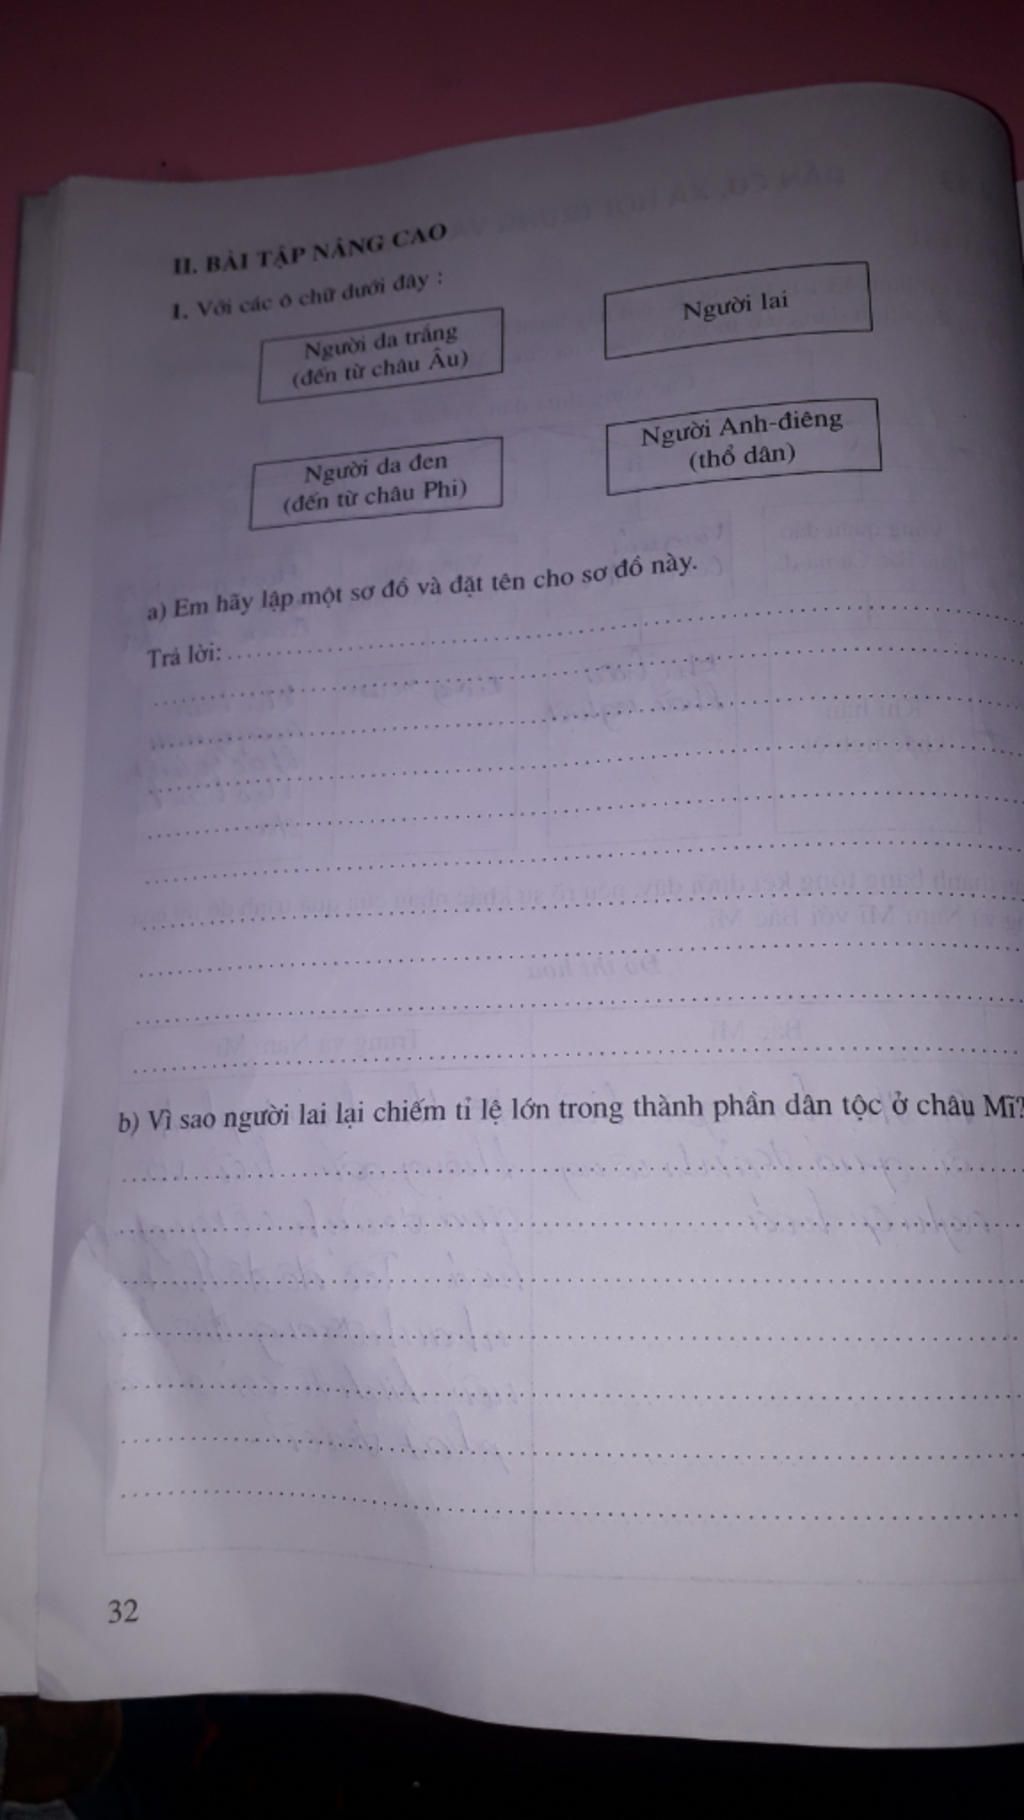 II. BÀI TẬP NÂNG CAO
1. Với các ô chữ dưới đây :
Người da trắng
(đến từ châu Âu)
Người lai
Người da đen
(đến từ châu Phi)
Người Anh-điêng
(thổ dân)
a) Em hãy lập một sơ đồ và đặt tên cho sơ đồ này.
Trả lời:
b) Vì sao người lai lại chiếm tỉ lệ lớn trong thành phần dân tộc ở châu Mĩ?
32